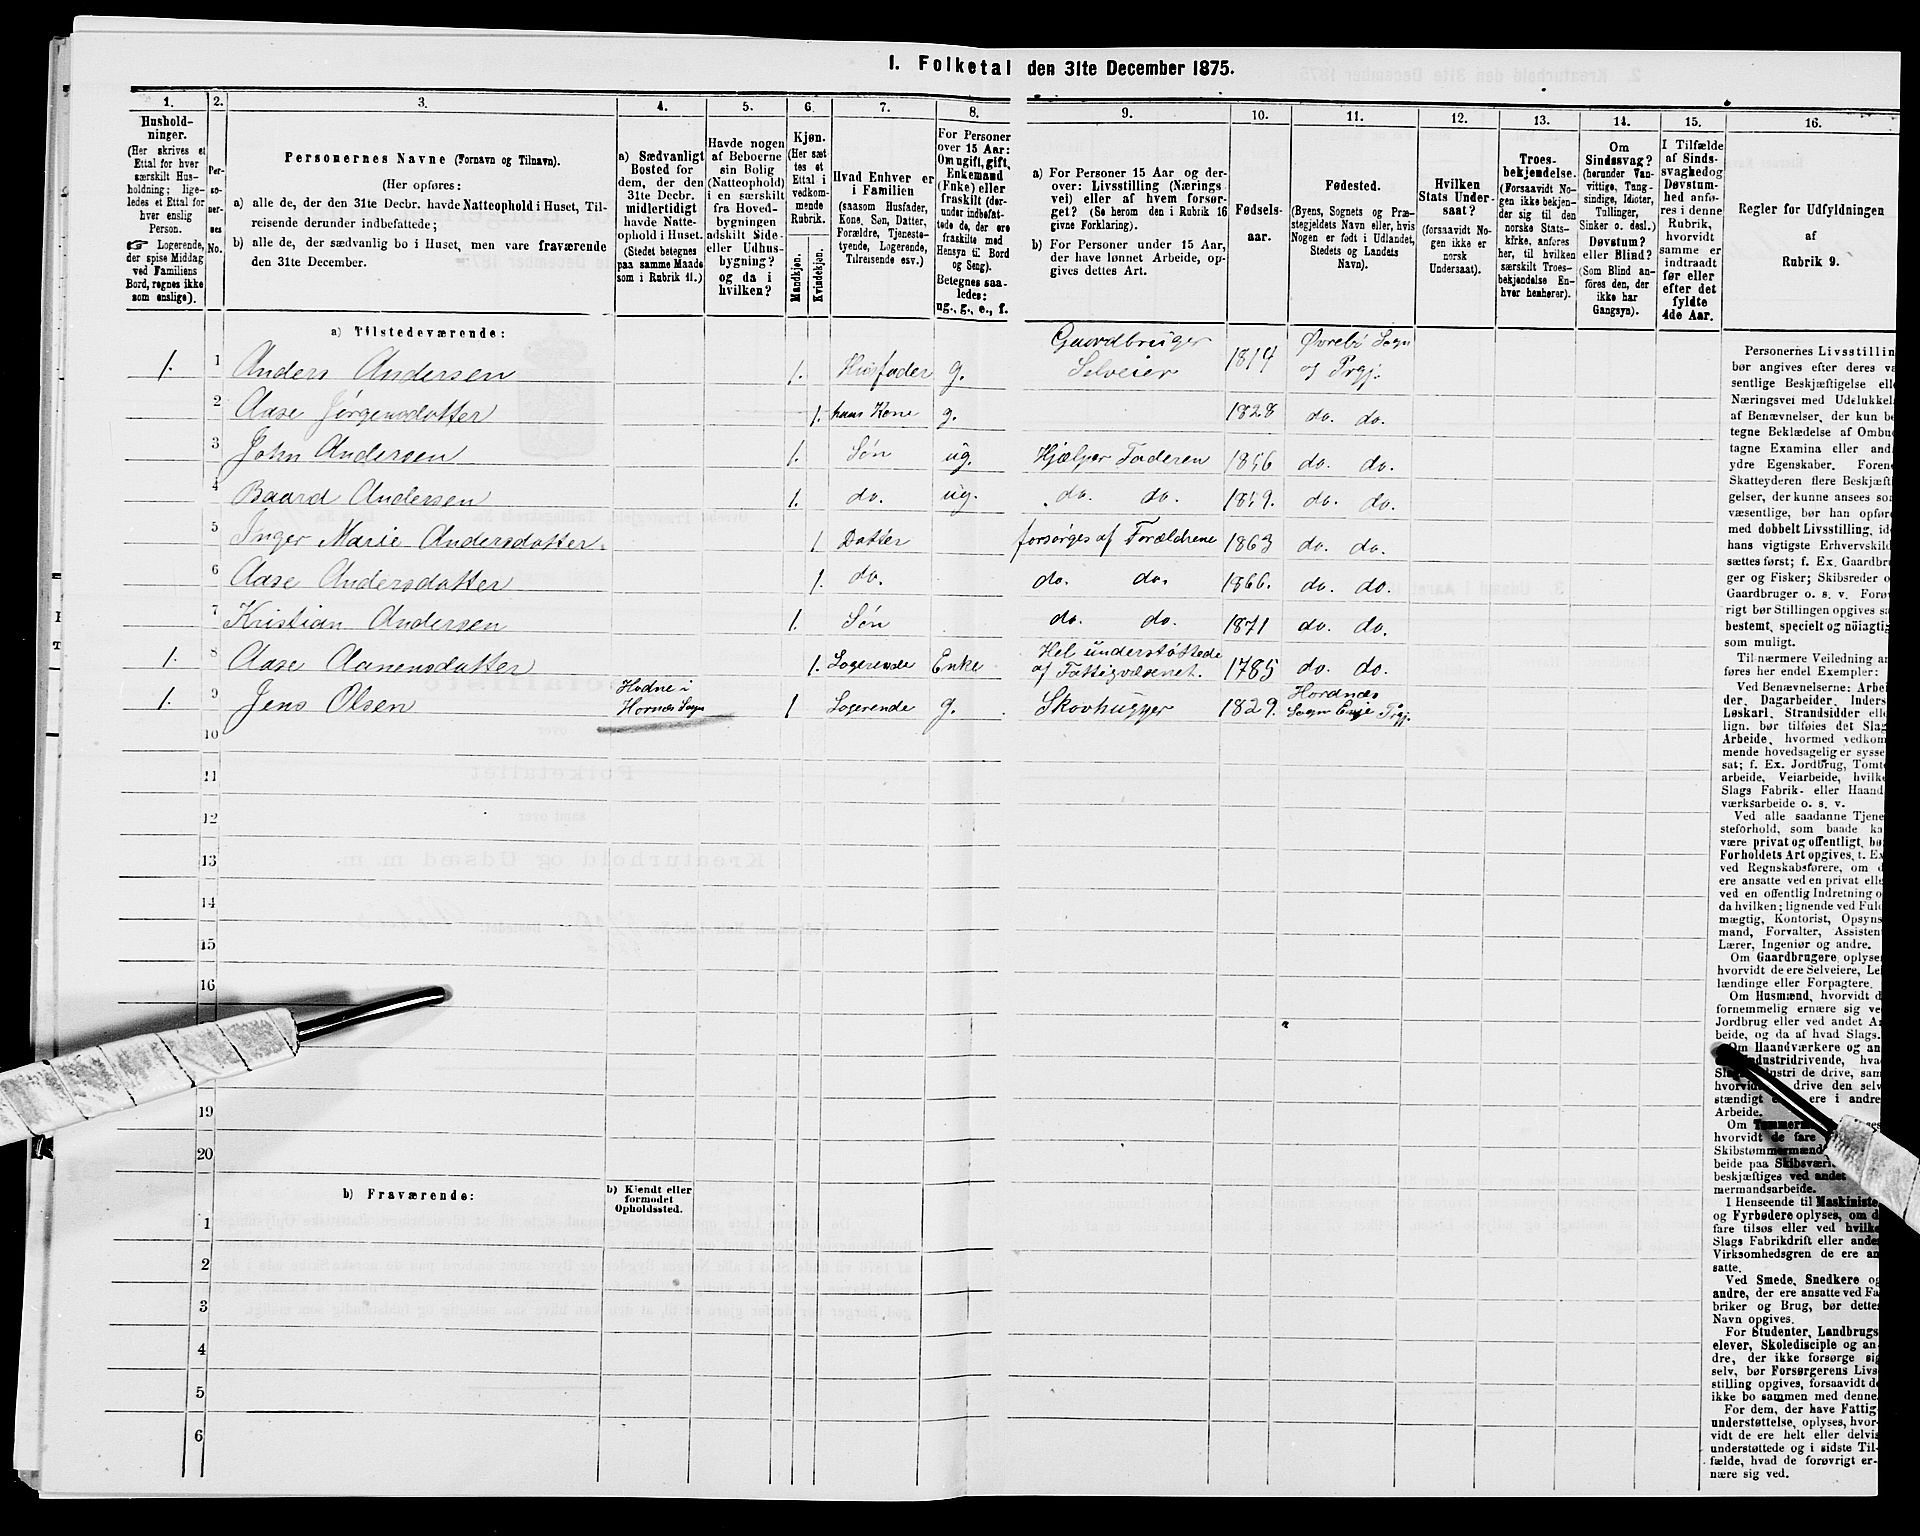 I. Folketal den 31te December 1875.
1. 2. 3. 4. 5. 6. 7. 8. 9. 10. 11. 12. 13. 14. 15. 16.
Hushold-
ninger.
(Her skrives et
Ettal for hver
særskilt Hus-
holdning; lige-
ledes et Ettal for
hver enslig
Person.
☞ Logerende,
der spise Middag
ved Familiens
Bord, regnes ikke
som enslige).
Per-
so-
ner-
nes
No.
Personernes Navne (Fornavn og Tilnavn).
(Her opføres:
a) alle de, der den 31te Decbr. havde Natteophold i Huset, Til-
reisende derunder indbefattede;
b) alle de, der sædvanlig bo i Huset, men vare fraværende
den 31te December.
a) Sædvanligt
Bosted for
dem, der den
31te Decbr.
midlertidigt
havde Natte-
ophold i Huset.
(Stedet betegnes
paa samme Maade
som i Rubrik 11.)
Havde nogen
af Beboerne
sin Bolig
(Natteophold)
i en særskilt
fra Hoved-
bygningen
adskilt Side-
eller Udhus-
bygning?
og da i
hvilken?
Kjøn.
(Her sæt
tes et
Ettal i
vedkom-
mende
Rubrik.
Mandkjøn.
Kvindekjøn.
Hvad Enhver er
i Familien
(saasom Husfader,
Kone, Søn, Datter,
Forældre, Tjeneste-
tyende, Logerende,
Tilreisende osv.)
For Personer
over 15 Aar:
Om ugift, gift,
Enkemand
(Enke) eller
fraskilt (der-
under indbefat-
tede de, der ere
fraskilte med
Hensyn til Bord
og Seng).
Betegnes saa-
ledes:
ug., g., e., f.
a) For Personer 15 Aar og der-
over: Livsstilling (Nærings-
vei) eller af hvem forsør-
get? (Se herom den i Rubrik 16
givne Forklaring).
b) For Personer under 15 Aar,
der have lønnet Arbeide, op-
gives dettes Art.
Fødsels-
aar.
Fødested.
(Byens, Sognets og Præ-
stegjeldets Navn eller, hvis
Nogen er født i Udlandet,
Stedets og Landets
Navn).
Hvilken
Stats Under-
saat?
(forsaavidt No-
gen ikke er
norsk
Undersaat).
Troes-
bekjendelse.
(Forsaavidt No-
gen ikke bekjen-
der sig til den
norske Stats-
kirke, anføres
her, til hvilken
særskilt Troes-
bekjendelse En-
hver henhører).
Om
Sindssvag?
(herunder Van-
vittige, Tung-
sindige, Idioter,
Tullinger,
Sinker o. desl.)
Døvstum?
eller Blind?
(Som Blind an-
føres den, der
ikke har
Gangsyn).
I Tilfælde
af Sinds-
svaghed og
Døvstum-
hed anfø-
res i denne
Rubrik,
hvorvidt
samme er
indtraadt
før eller
efter det
fyldte
4de Aar.
Regler for Udfyldningen
af
Rubrik 9.
a) Tilstedeværende:
1. 1 Anders Andersen 1. Husfader g. Gaardbruger Selveier 1814 Øvrebø Sogn og Prgj.
2 Aase Jørgensdatter 1. hans Kone g. 1828 do. do.
3 John Andersen 1. Søn ug. Hjælper Faderen 1856 do. do.
4 Baard Andersen 1. do. ug. do. do. 1859. do. do.
5 Inger Marie Andersdatter. 1 Datter forsørges af Forældrene 1863 do. do.
6 Aase Andersdatter 1. do. do. do. 1866. do. do.
7 Kristian Andersen 1. Søn do. do. 1871 do. do.
1. 8 Aase Aanensdatter 1. Logerende Enke Hel understøttede af Fattigvæsenet. 1785 do. do.
1. 9 Jens Olsen Hodne i Hornes Sogn 1 Logerende g. Skovhugger 1829. Hordnæs Sogn Prgj.
10
11
12
13
14
15
16
19
20
b) Fraværende:
b) Kjendt eller
formodet
Opholdssted.
1
2
3
4
5
6
Personernes Livsstillin
bør angives efter deres va
sentlige Beskjæftigelse elle
Næringsvei med Udelukkels
af Benævnelser, der kun be
tegne Beklædelse af Ombud
tagne Examina eller and
ydre Egenskaber. Foren
Skatteyderen flere Beskjæfti
gelser, der kunne ansees son
væsentlige, bør han opføre
med dobbelt Livsstilling, ide
hans vigtigste Erhvervskild
sættes først; f. Ex. Gaardbru
ger og Fisker; Skibsreder o
Gaardbruger o. s. v. Forøv
rigt bør Stillingen opgives sa
bestemt, specielt og nöiagtig
som muligt.
Til nærmere Veiledning an
føres her endel Exempler:
Ved Benævnelserne: Arbei
der, Dagarbeider, Inderst
Løskarl, Strandsidder elle
lign. bør tilføies det Slags
Arbeide, hvormed vedkom
mende hovedsagelig er syssel
sat; f. Ex. Jordbrug, Tomte
arbeide, Veiarbeide, hvilke
Slags Fabrik- eller Haand
værksarbeide o. s. v.
Ved alle saadanne Tjene
steforhold, som baade ka
være privat og offentligt, bø
Forholdets Art opgives, t. Ex
ved Regnskabsførere, om d
ere ansatte ved en privat elle
ved en offentlig Indretning o
da hvilken; lignende ved Fuld
mægtig, Kontorist, Opsyns
mand, Forvalter, Assistent
Lærer, Ingeniør og andre.
Om Gaardbrugere oplyses
hvorvidt de ere Selveiere, Lei
lændinge eller Forpagtere.
Om Husmænd, hvorvidt d
fornemmelig ernære sig ve
Jordbrug eller ved andet Ar
beide, og da af hvad Slags.
Om Haandværkere og an
Industridrivende, hva
Slags Industri de drive, samt
hvorvidt drive den selv
stændigt ere i andre
Arbeide.
Om
hvorvidt de fare
Skibstømmermænd
beide paa Skibsværf
beskjæftiges ved andet
mermandsarbeide.
I Henseende til Maskiniste
og Fyrbødere oplyses, om d
fare tilsøs eller ved hvilke
Slags Fabrikdrift eller anden
Virksomhedsgren de ere an
satte.
Ved Smede, Snedkere og
andre, der ere ansatte ved Fa
briker og Brug, bør dettes
Navn opgives.
For Studenter, Landbrugs
elever, Skoledisciple og an-
dre, der ikke forsørge sig
selv, bør Forsørgerens Livs
stilling opgives, forsaavidt de
ikke bo sammen med denne.
For dem, der have Fattig-
understøttelse, oplyses, hvor-
vidt de ere helt eller delvis
understøttede og i sidste Til-
fælde, hvad de forøvrigt er-
nære sig ved.